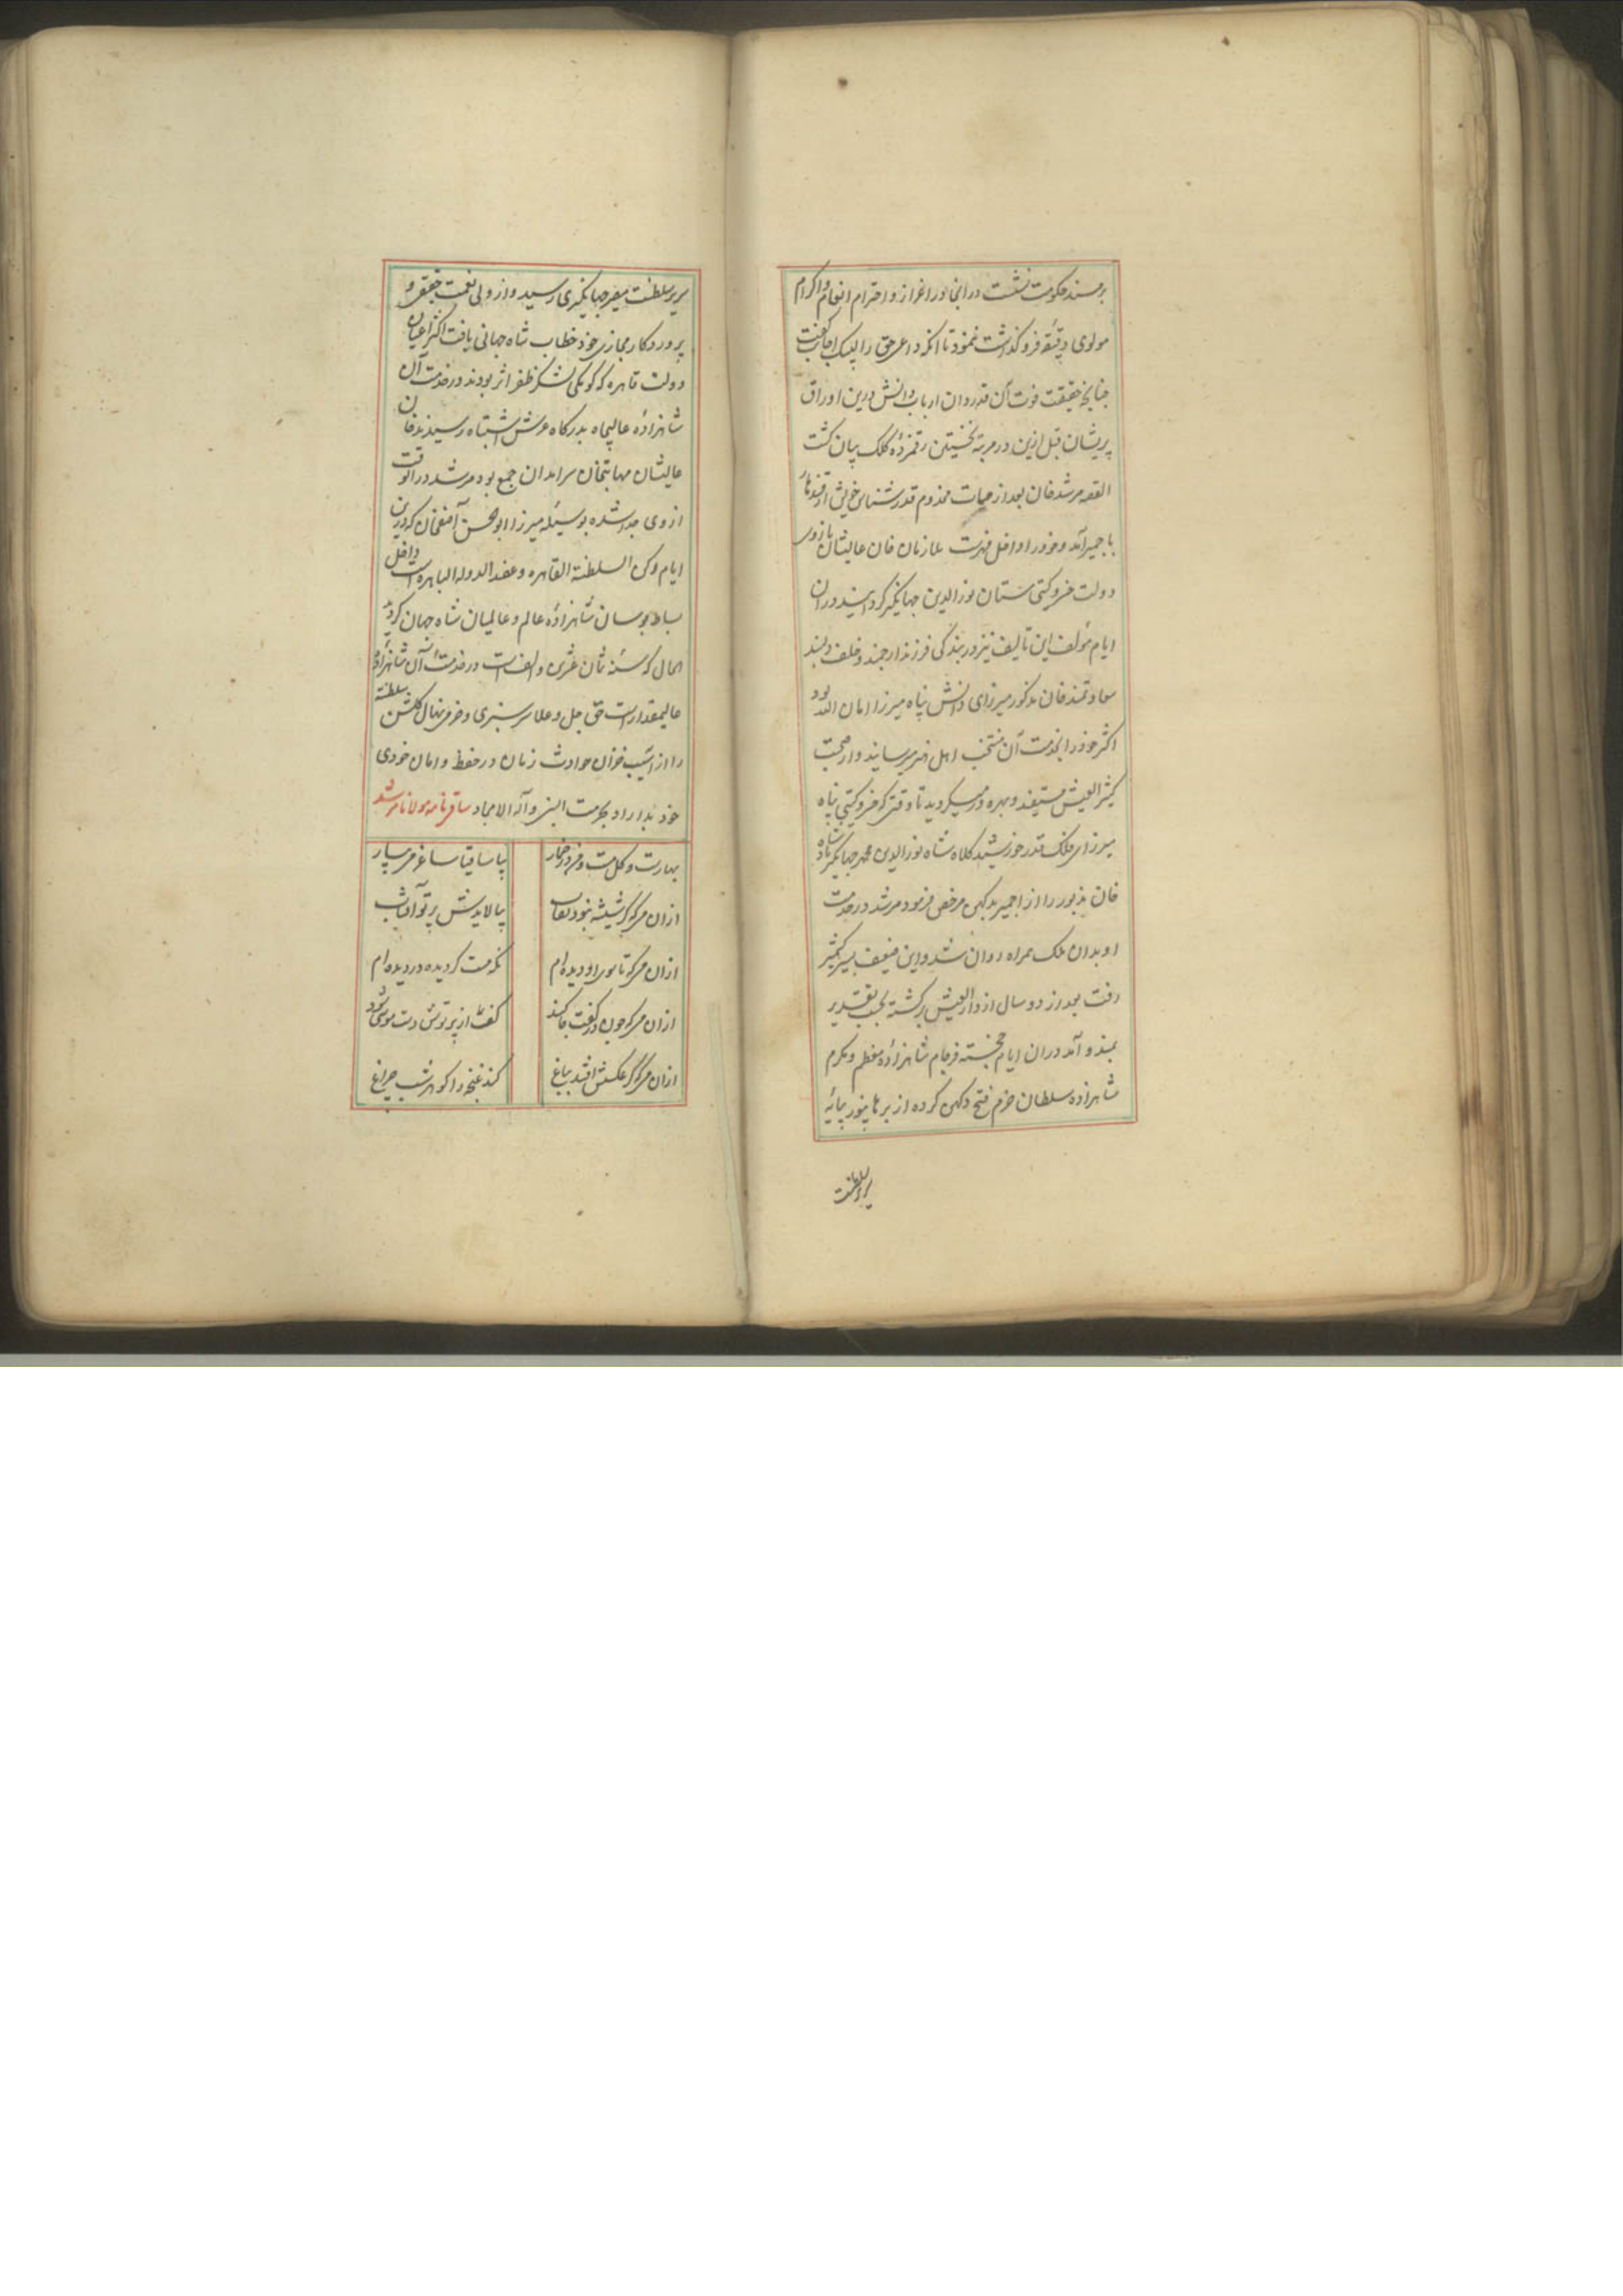 بر مسند حکومت نشست در آنجا در اعزاز و احترام و انعام و اکرام
مولوی دقیقه فرو گذاشت ننمود تا آنکه داعی حق را لبیک اجابت گفت
چنانچه حقیقت فوت آن قدردان ارباب دانش درین اوراق
پریشان قبل ازین در مرتبه نخستین رقمزده کلک بیان گشت
القصه مرشد خان بعد از حیات مخدوم قدرشناس خویش از
باجمیر آمد و خود را داخل فهرست ملازمان خان عالیشان بازوی
دولت خسرو کیتی ستان نورالدین جهانکیر کردانید در آن
ایام مؤلف این تألیف نیز در بندکی فرزند ارجمند و خلف دلبند
سعادتمند خان مذکور میرزای دانش پناه میرزا امان الله بود
اکثر خود را بخدمت آن منتخب اهل هنر میرسانید و از صحبت
کثیر الفیض مستفید و بهره ور میکردید تا وقتی که خسرو کیتی پناه
میرزای فلک قدر خورشید کلاه شاه نورالدین محمد جهانکیر پادشاه
خان مذبور را از اجمیر بدکهن مرخص فرمود مرشد در خدمت
او بدان ملک همراه روان شد و این ضعیف بسیر کشمیر
رفت بعد از دو سال از دارالعیش برکشته بحسب تقدیر
بمندو آمد در آن ایام خجسته فرجام شاهزاده معظم و مکرم
شاهزاده سلطان خرم فتح دکهن کرده از برهانپور بپایه
سریر سلطنت
سریر سلطنت مصیر جهانکیری رسید و از ولی نعمت حقیقی و
پروردکار مجازی خود خطاب شاه جهانی یافت اکثر اعیان
دولت قاهره که کومکی لشکر ظفر اثر بودند در خدمت آن
شاهزاده عالیجاه بدرکاه عرش اشتباه رسیدند خان
عالیشان مهابتخان سرآمد آن جمع بود مرشد در آنوقت
از وی جدا شده بوسیله میرزا ابوالحسن آصفخان که درین
ایام رکن السلطنة القاهره و عضد الدوله الباهره است داخل
بساط بوسان شاهزاده عالم و عالمیان شاه جهان کردید
الحال که سنه ثمان عشرین و الف است در خدمت آن شاهزاده
عالیمقدار است حق جل و علا سرسبزی و خرمی نهال کلشن سلطنت
را از آسیب خزان حوادث زمان در حفظ و امان خودی
خود بداراد بحرمت النبی و آله الامجاد ساقی نامه مولانا مرشد
بهارست و کل مست و من در خمار بیا ساقیا ساغر می بیار
از آن می که کر شیشه نبود نقاب بپالایدش پرتو آفتاب
از آن می که تا سوی او دیده ام نکه مست کردیده در دیده ام
از آن می که چون در کفت جا کند کفت از پرتوش دست موسی شود
از آن می که کر عکسش افتد بباغ کند غنچه را کوهر شب چراغ